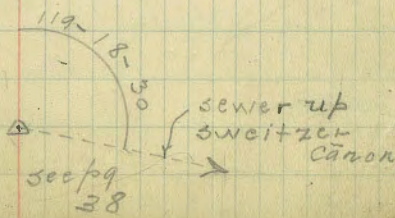 119-18-30
sewer up
sweitzer
cañon
see pg
38